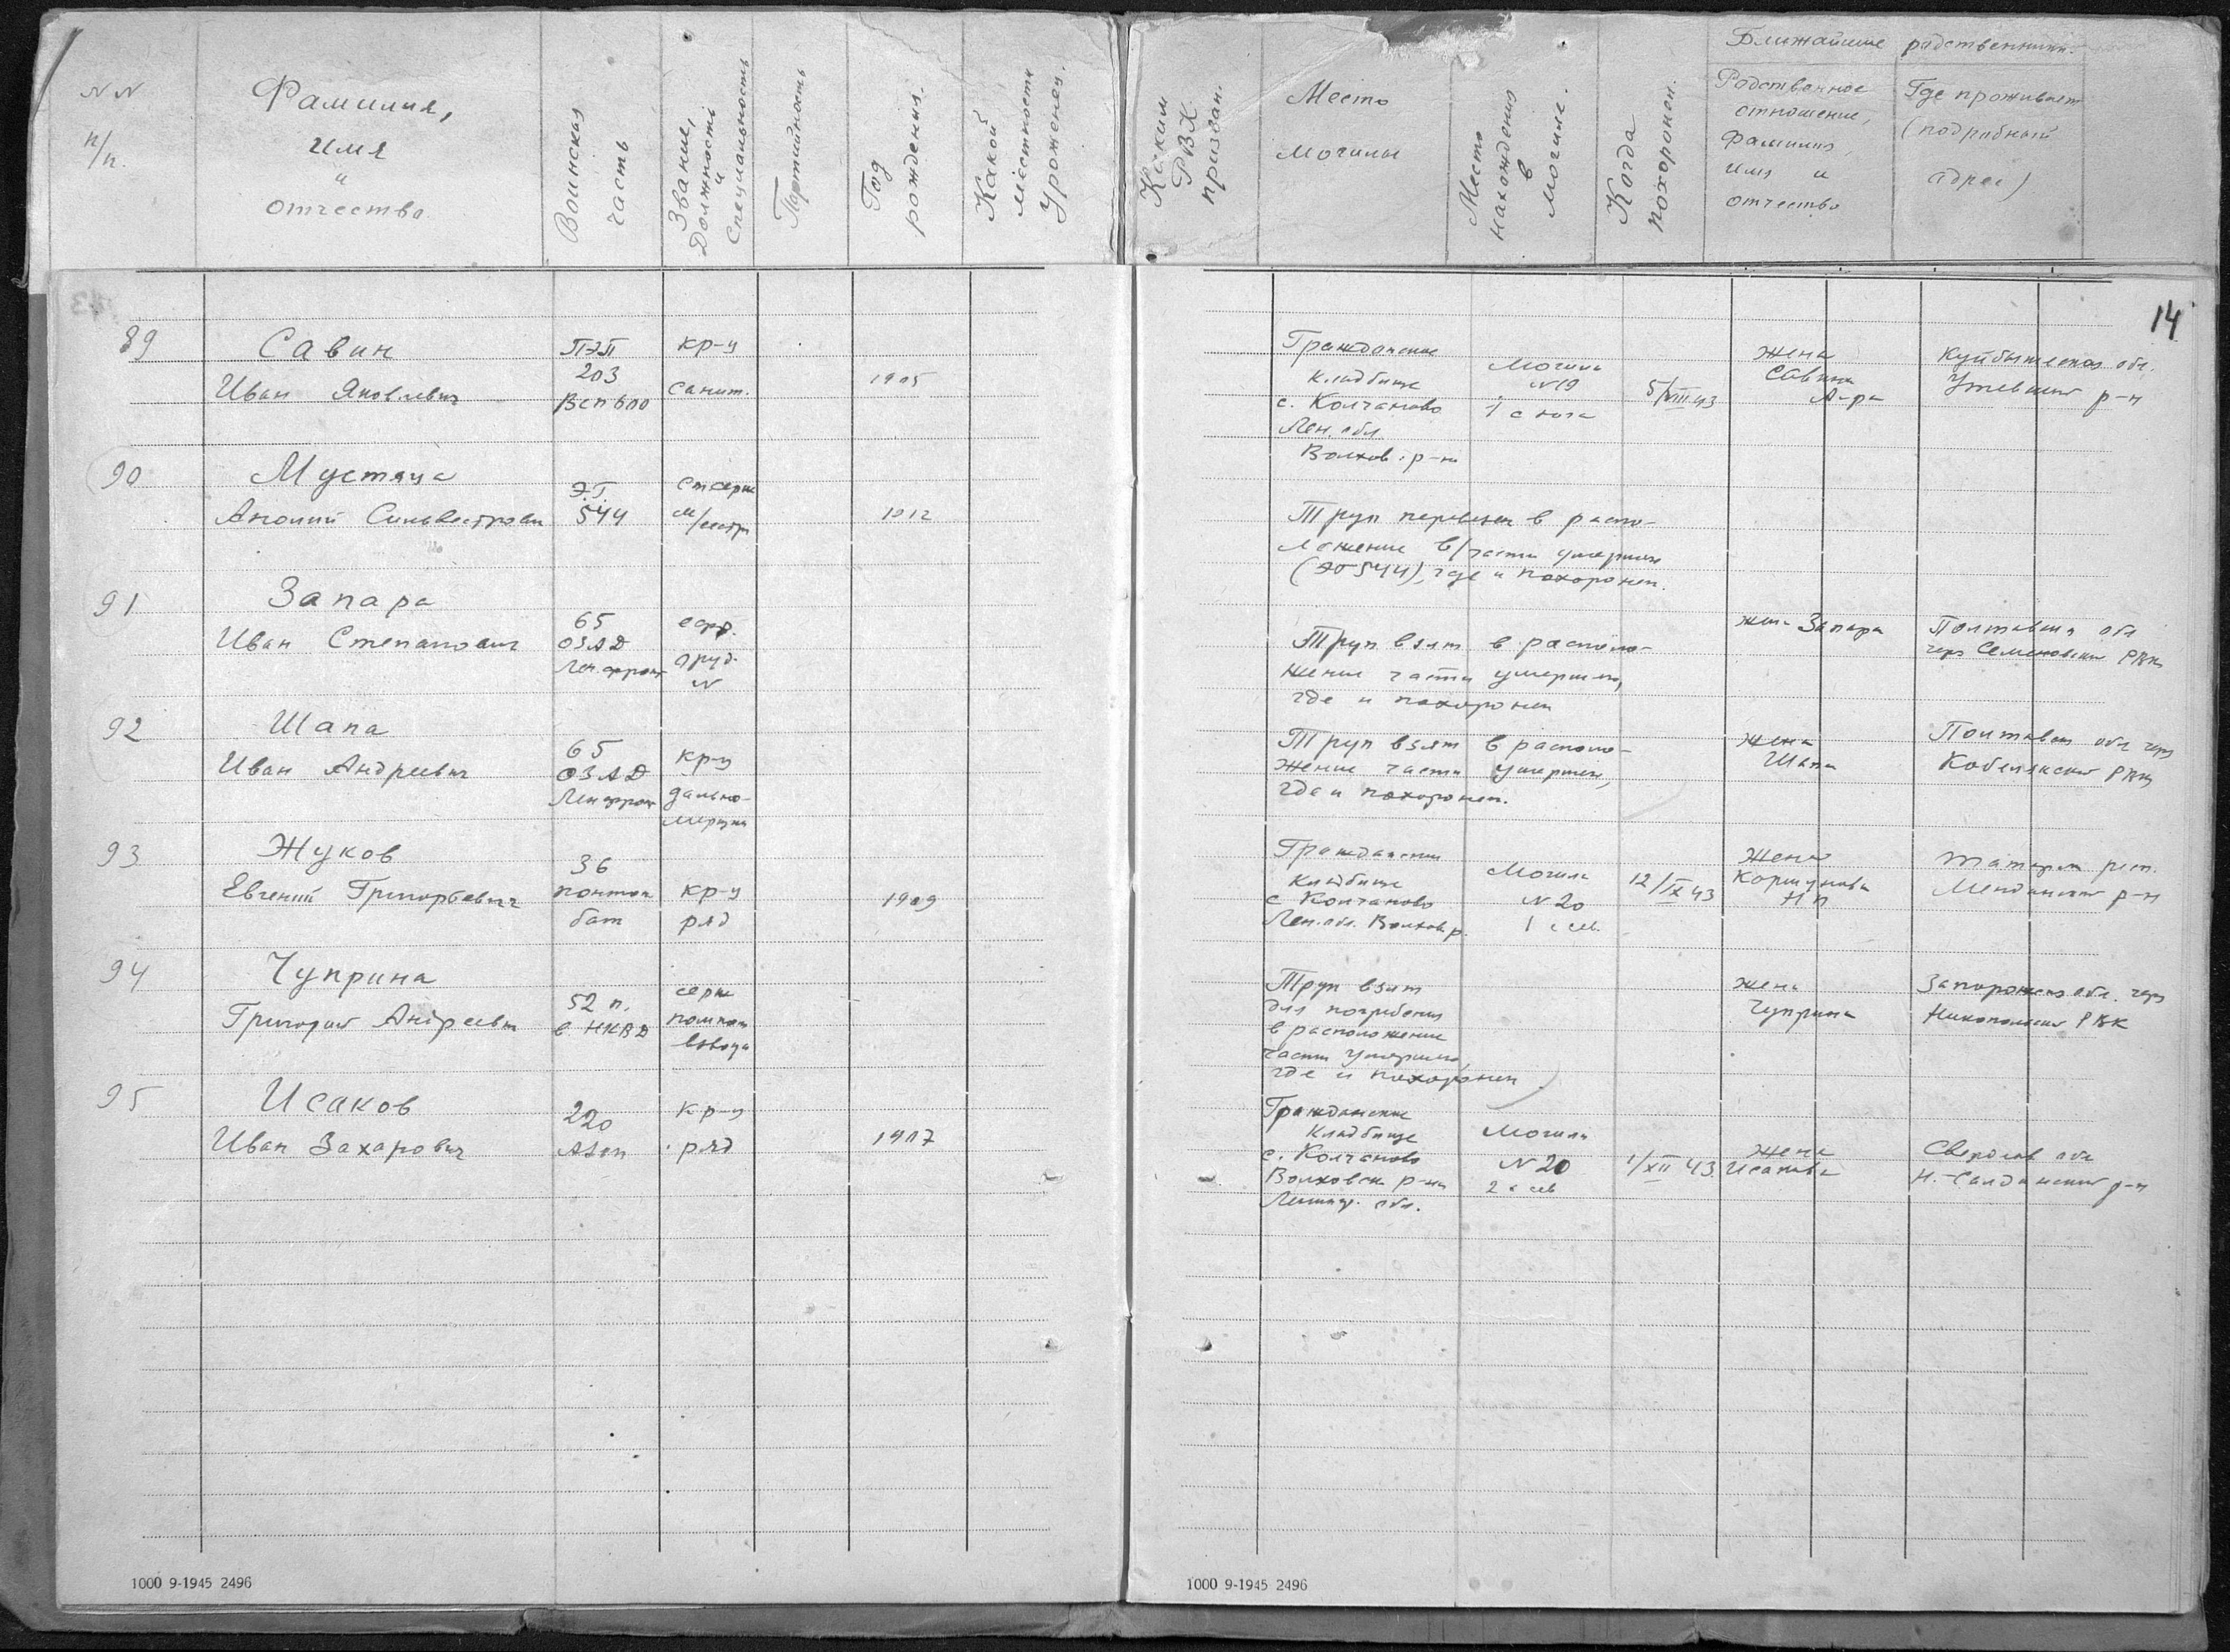 NN
п/п.
Фамилия,
имя
и
отчество
Воинская
часть
Звание,
Должность
и
Специальность
Партийность
Год
рождения.
Какой
местности
Уроженец.
Каким
РВК
призван.
Место
могилы
Место
нахождения
в
могиле.
Когда
похоронен.
Ближайшие родственники.
Родственное
отношение,
Фамилия,
имя и
отчество
Где проживает
(подробный
адрес)
14
89
Савин
Иван Яковлевич
ПЭП
203
кр-ц
санит.
1905
Гражданское
кладбище
с. Колчаново
Лен. обл.
Волхов. р-н
Могила
N 19
1 с юга
5/VIII 43
Жена
Савина
А-ра
Куйбышевская обл.
р-н
90
Мустяца
Силивестрович
Э.Г.
544
Ст серж
м/сестра
1912
Труп перевезен в распо-
ложение в/части умершего
(ЭГ 544), где и похоронен.
91
Запара
Иван Степанович
65
ОЗАД
Ленфронт
ефр.
оруд.
N
Труп взят в располо-
жение части умершего,
где и похоронен
жена Запара
Полтавская обл
через Семеновский РВК
92
Шапа
Иван Андреевич
65
ОЗАД
Ленфронт
кр-ц
дально-
мерщик
Труп взят в располо-
жение части умершего,
где и похоронен.
жена
Шапа
Полтавск обл чер
Кобелякский РВК
93
Жуков
Евгений Григорьевич
36
понтон
бат
кр-ц
ряд
1909
Гражданское
кладбище
с Колчаново
Лен. обл. Волхов р.
Могила
N 20
1 с сев.
12/IX 43
Жена
Коршунова
Н П
Татарск респ.
р-н
94
Чуприна
Григорий Андреевич
52 п.
в НКВД
серж
помком
взвода
Труп взят
для погребения
в расположение
части умершего,
где и похоронен
жена
Чуприна
Запорожская обл. чер
Никопольский РВК
95
Исаков
Иван Захарович
220
АЗСП
кр-ц
ряд
1907
Гражданское
кладбище
с. Колчаново
Волховск р-на
Ленингр. обл.
Могила
N 20
2 с сев
1/XII 43
Жена
Исакова
Свердлов обл
Н.-Салдинский р-н
1000 9-1945 2496
1000 9-1945 2496